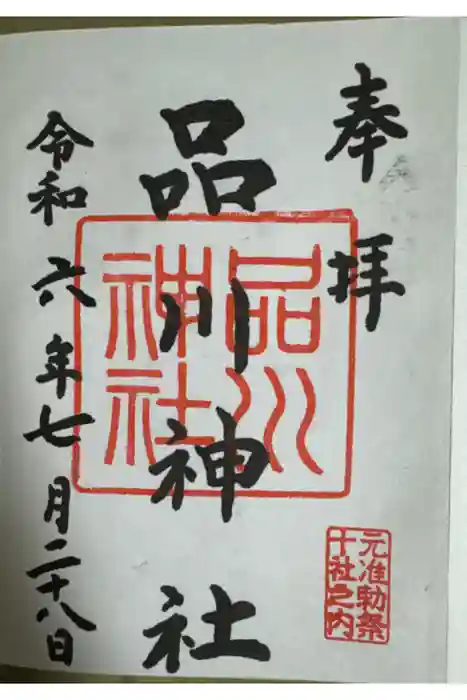 奉拝
品川神社
品川
神社
令和六年七月二十八日
元准勅祭
十社之内